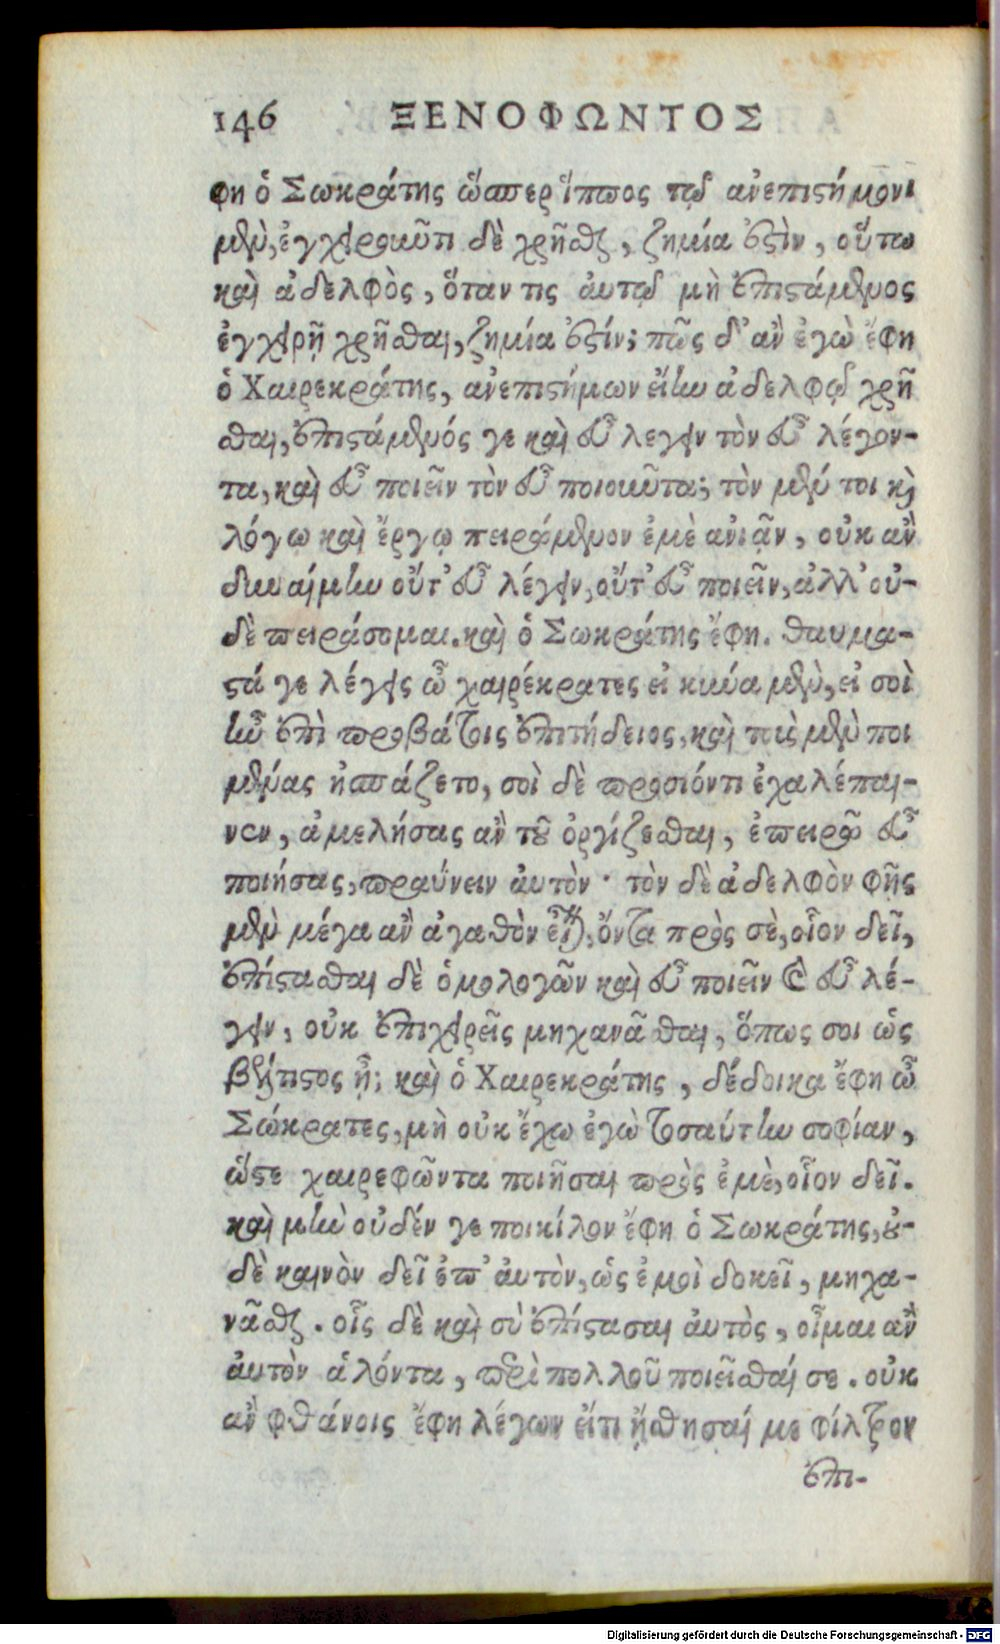 146 ΞΕΝΟΦΩΝΤΟΣ
φη ὁ Σωκράτης ὥσπερ ἵππος τῷ ἀνεπιστήμονι
μὲν, ἐγχειροῦντι δὲ χρῆσθαι, ζημία ἐστὶν, οὕτω
καὶ ἀδελφὸς, ὅταν τις ἀυτῷ μὴ ἐπιστάμενος
ἐγχειρῇ χρῆσθαι, ζημία ἐστίν; πῶς δ' ἂν ἐγὼ ἔφη
ὁ Χαιρεκράτης, ἀνεπιστήμων εἴην ἀδελφῷ χρῆ
σθαι, ἐπιστάμενός γε καὶ εὖ λέγειν τὸν εὖ λέγον-
τα, καὶ εὖ ποιεῖν τὸν εὖ ποιοῦντα; τὸν μέν τοι καὶ
λόγῳ καὶ ἔργῳ πειρώμενον ἐμὲ ἀνιᾶν, οὐκ ἂν
δυναίμην οὔτ' εὖ λέγειν, οὔτ' εὖ ποιεῖν, ἀλλ' οὐ-
δὲ πειράσομαι. καὶ ὁ Σωκράτης ἔφη. θαυμα-
στά γε λέγεις ὦ χαιρέκρατες εἰ κύνα μὲν, εἰ σοὶ
ἦν ἐπὶ προβάτοις ἐπιτήδειος, καὶ τοὺς μὲν ποι
μένας ἠσπάζετο, σοὶ δὲ προσιόντι ἐχαλέπαι-
νεν, ἀμελήσας ἂν τοῦ ὀργίζεσθαι, ἐπειρῶ εὖ
ποιήσας, πραΰνειν ἀυτὸν· τὸν δὲ ἀδελφὸν φῇς
μὲν μέγα ἂν ἀγαθὸν εἶναι, ὄντα πρὸς σὲ, οἷον δεῖ,
ἐπίστασθαι δὲ ὁμολογῶν καὶ εὖ ποιεῖν καὶ εὖ λέ-
γειν, οὐκ ἐπιχειρεῖς μηχανᾶσθαι, ὅπως σοι ὡς
βέλτιστος ᾖ; καὶ ὁ Χαιρεκράτης, δέδοικα ἔφη ὦ
Σώκρατες, μὴ οὐκ ἔχω ἐγὼ τοσαύτην σοφίαν,
ὥστε χαιρεφῶντα ποιῆσαι πρὸς ἐμὲ, οἷον δεῖ.
καὶ μὴν οὐδέν γε ποικίλον ἔφη ὁ Σωκράτης, οὐ-
δὲ καινὸν δεῖ ἐπ' ἀυτὸν, ὡς ἐμοὶ δοκεῖ, μηχα-
νᾶσθαι. οἷς δὲ καὶ σὺ ἐπίστασαι ἀυτὸς, οἶμαι ἂν
ἀυτὸν ἁλόντα, περὶ πολλοῦ ποιεῖσθαί σε. οὐκ
ἂν φθάνοις ἔφη λέγων εἴτι ᾔσθησαί με φίλτρον
ἐπι-
Digitalisierung gefördert durch die Deutsche Forschungsgemeinschaft - DFG